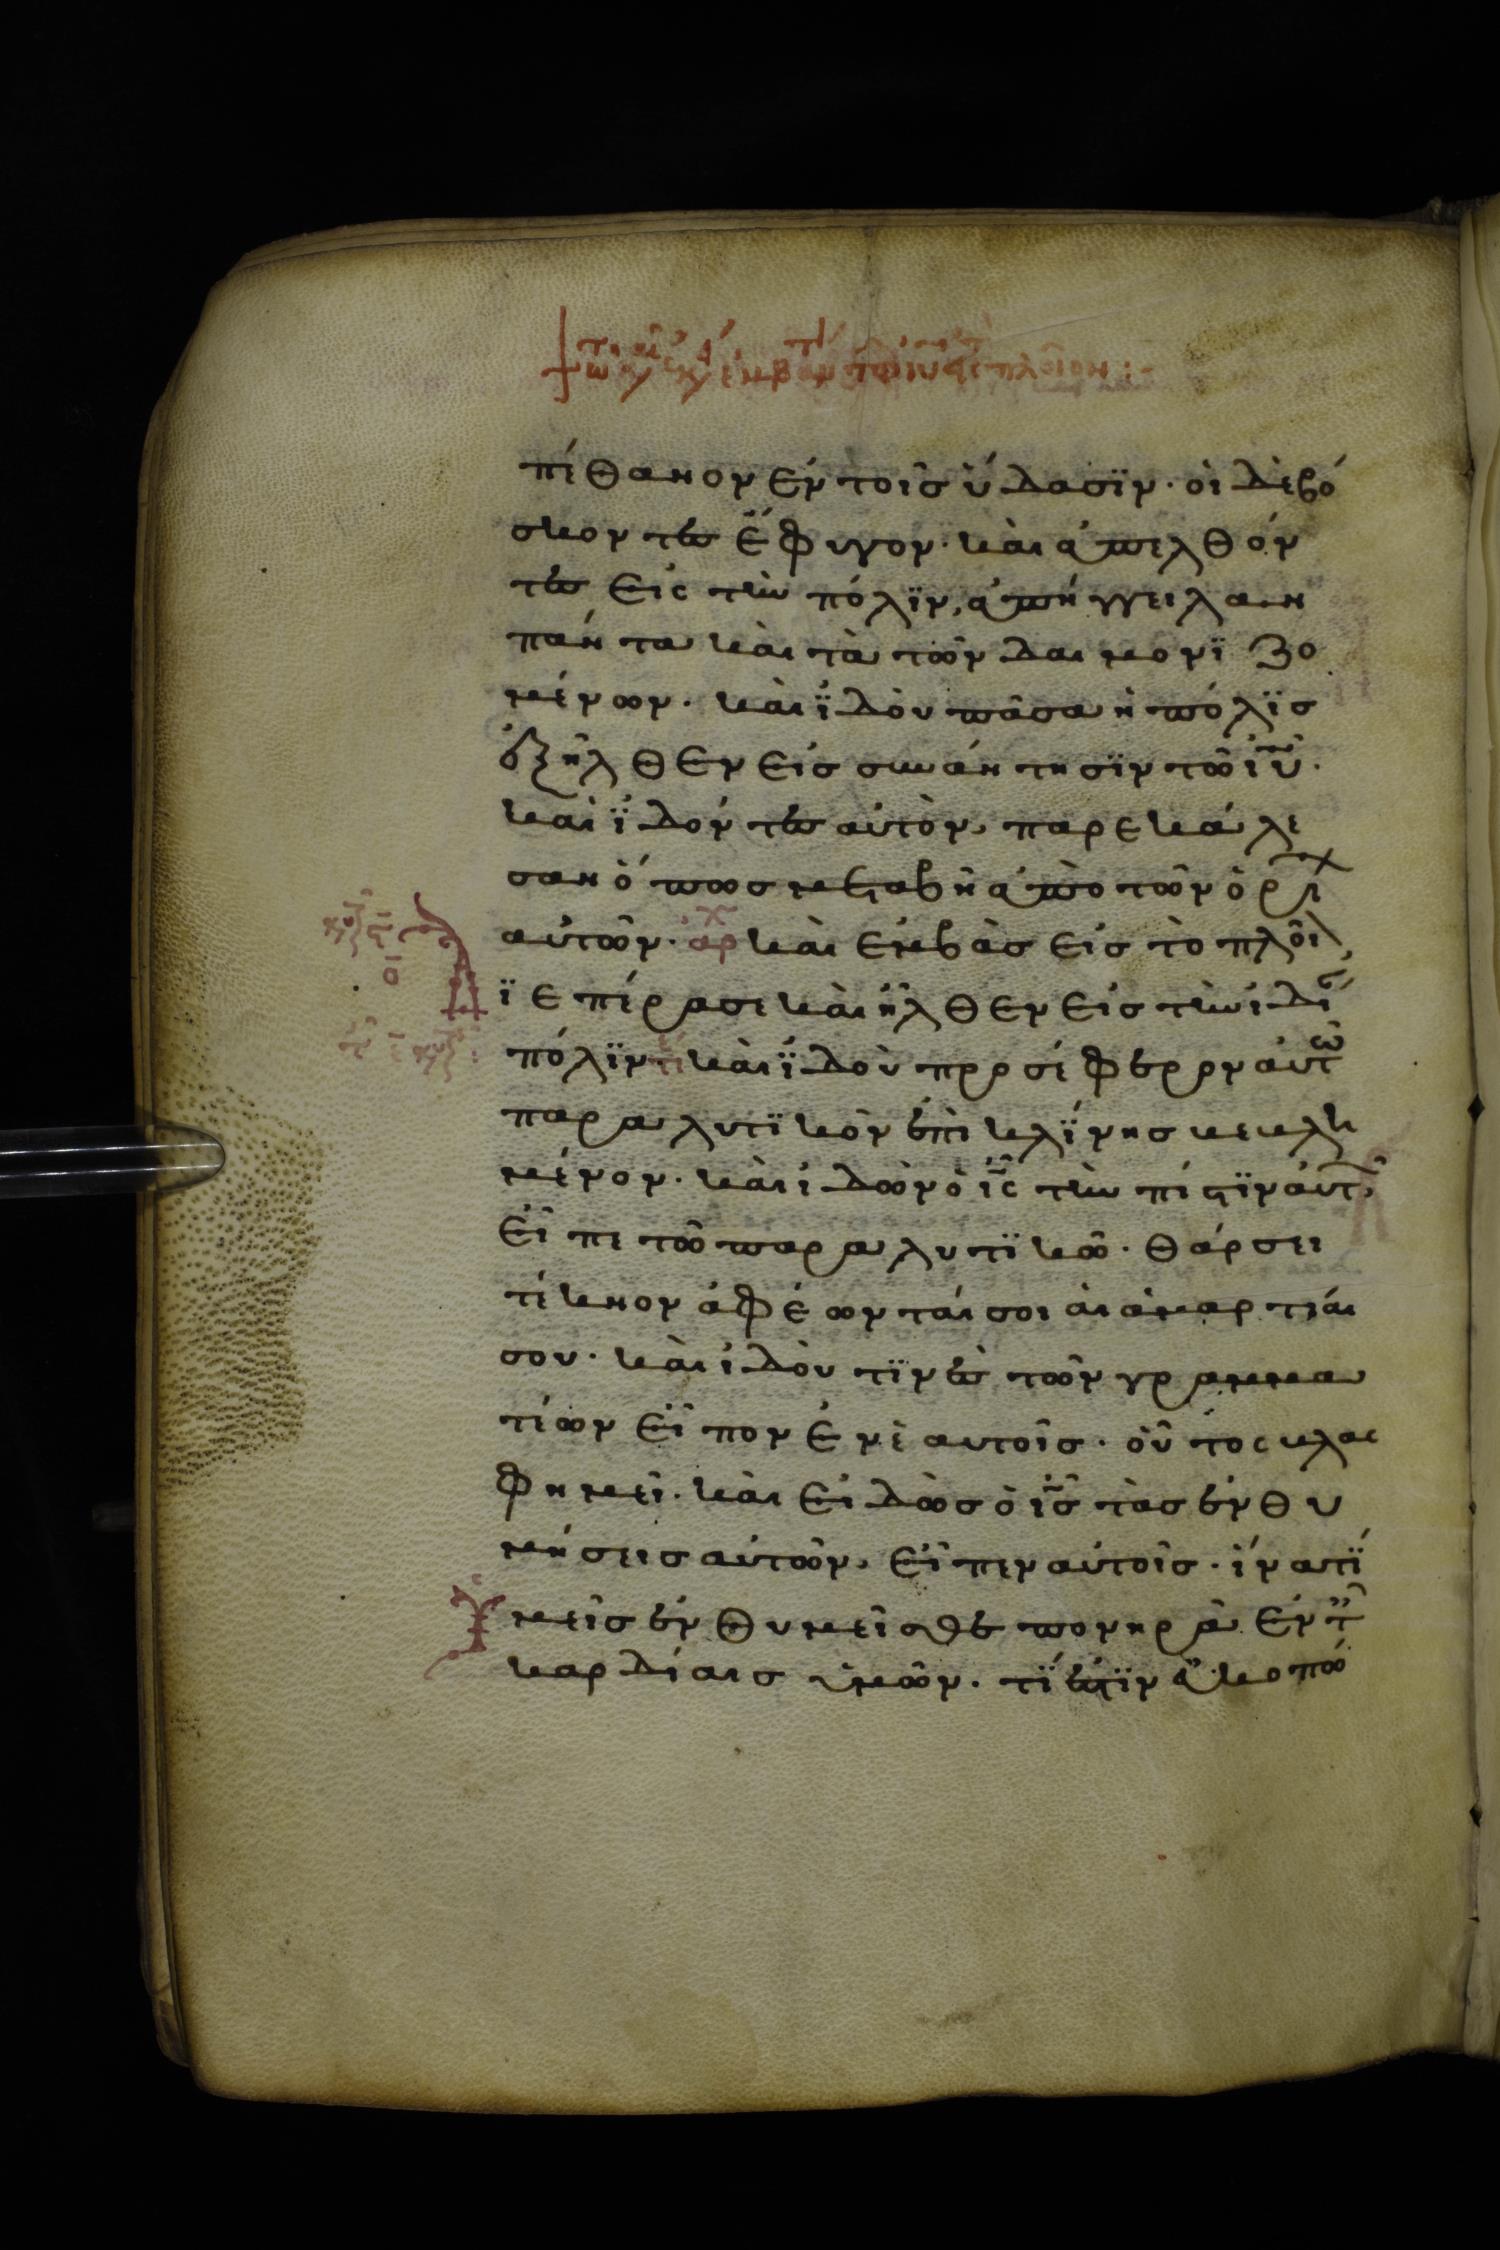 τω καιρω εκεινω εμβαντι τω ιυ εις πλοιον :-
πέθανον ἐν τοῖς ὕδασϊν · οἱ δὲ βό
σκοντες ἔφυγον · καὶ ἀπελθόν
τες εἰς τὴν πόλϊν, ἀπήγγειλαν
πάντα καὶ τὰ τῶν δαιμονϊζο
μένων · καὶ ϊδοὺ πᾶσα ἡ πόλϊς
ἐξῆλθεν εἰς συνάντησϊν τῶ ιυ ·
καὶ ϊδόντες αὐτὸν, παρεκάλε
σαν ὅπως μεταβῆ ἀπὸ τῶν ὁρι
αὐτῶν · αρχ καὶ ἐμβὰς εἰς τὸ πλοῖ
ϊεπέρασε καὶ ἦλθεν εἰς τὴν ἰδί
πόλϊν · τε καὶ ϊδοὺ προσέφερον αὐτῶ
παραλυτϊκὸν ἐπὶ κλϊνης κεκλη
μένον · καὶ ἰδὼν ὁ ις τὴν πίστϊν αὐτ
εἶπε τῶ παραλυτϊκῶ · θάρσει
τέκνον ἀφέωνταί σοι αἱ ἁμαρτίαι
σου · καὶ ἰδοὺ τϊνὲς τῶν γραμμα
τέων εἶπον ἐνὲ αυτοῖς · οὗτος βλασ
φημεῖ · καὶ εἰδὼς ὁ ις τὰς ἐνθυ
μήσεις αὐτῶν, εἶπεν αὐτοῖς · ἱνατϊ
Ὑμεῖς ἐνθυμεῖσθε πονηρὰ ἐν τ
καρδίαις ὑμῶν · τϊ ἐστϊν εὐκοπώ